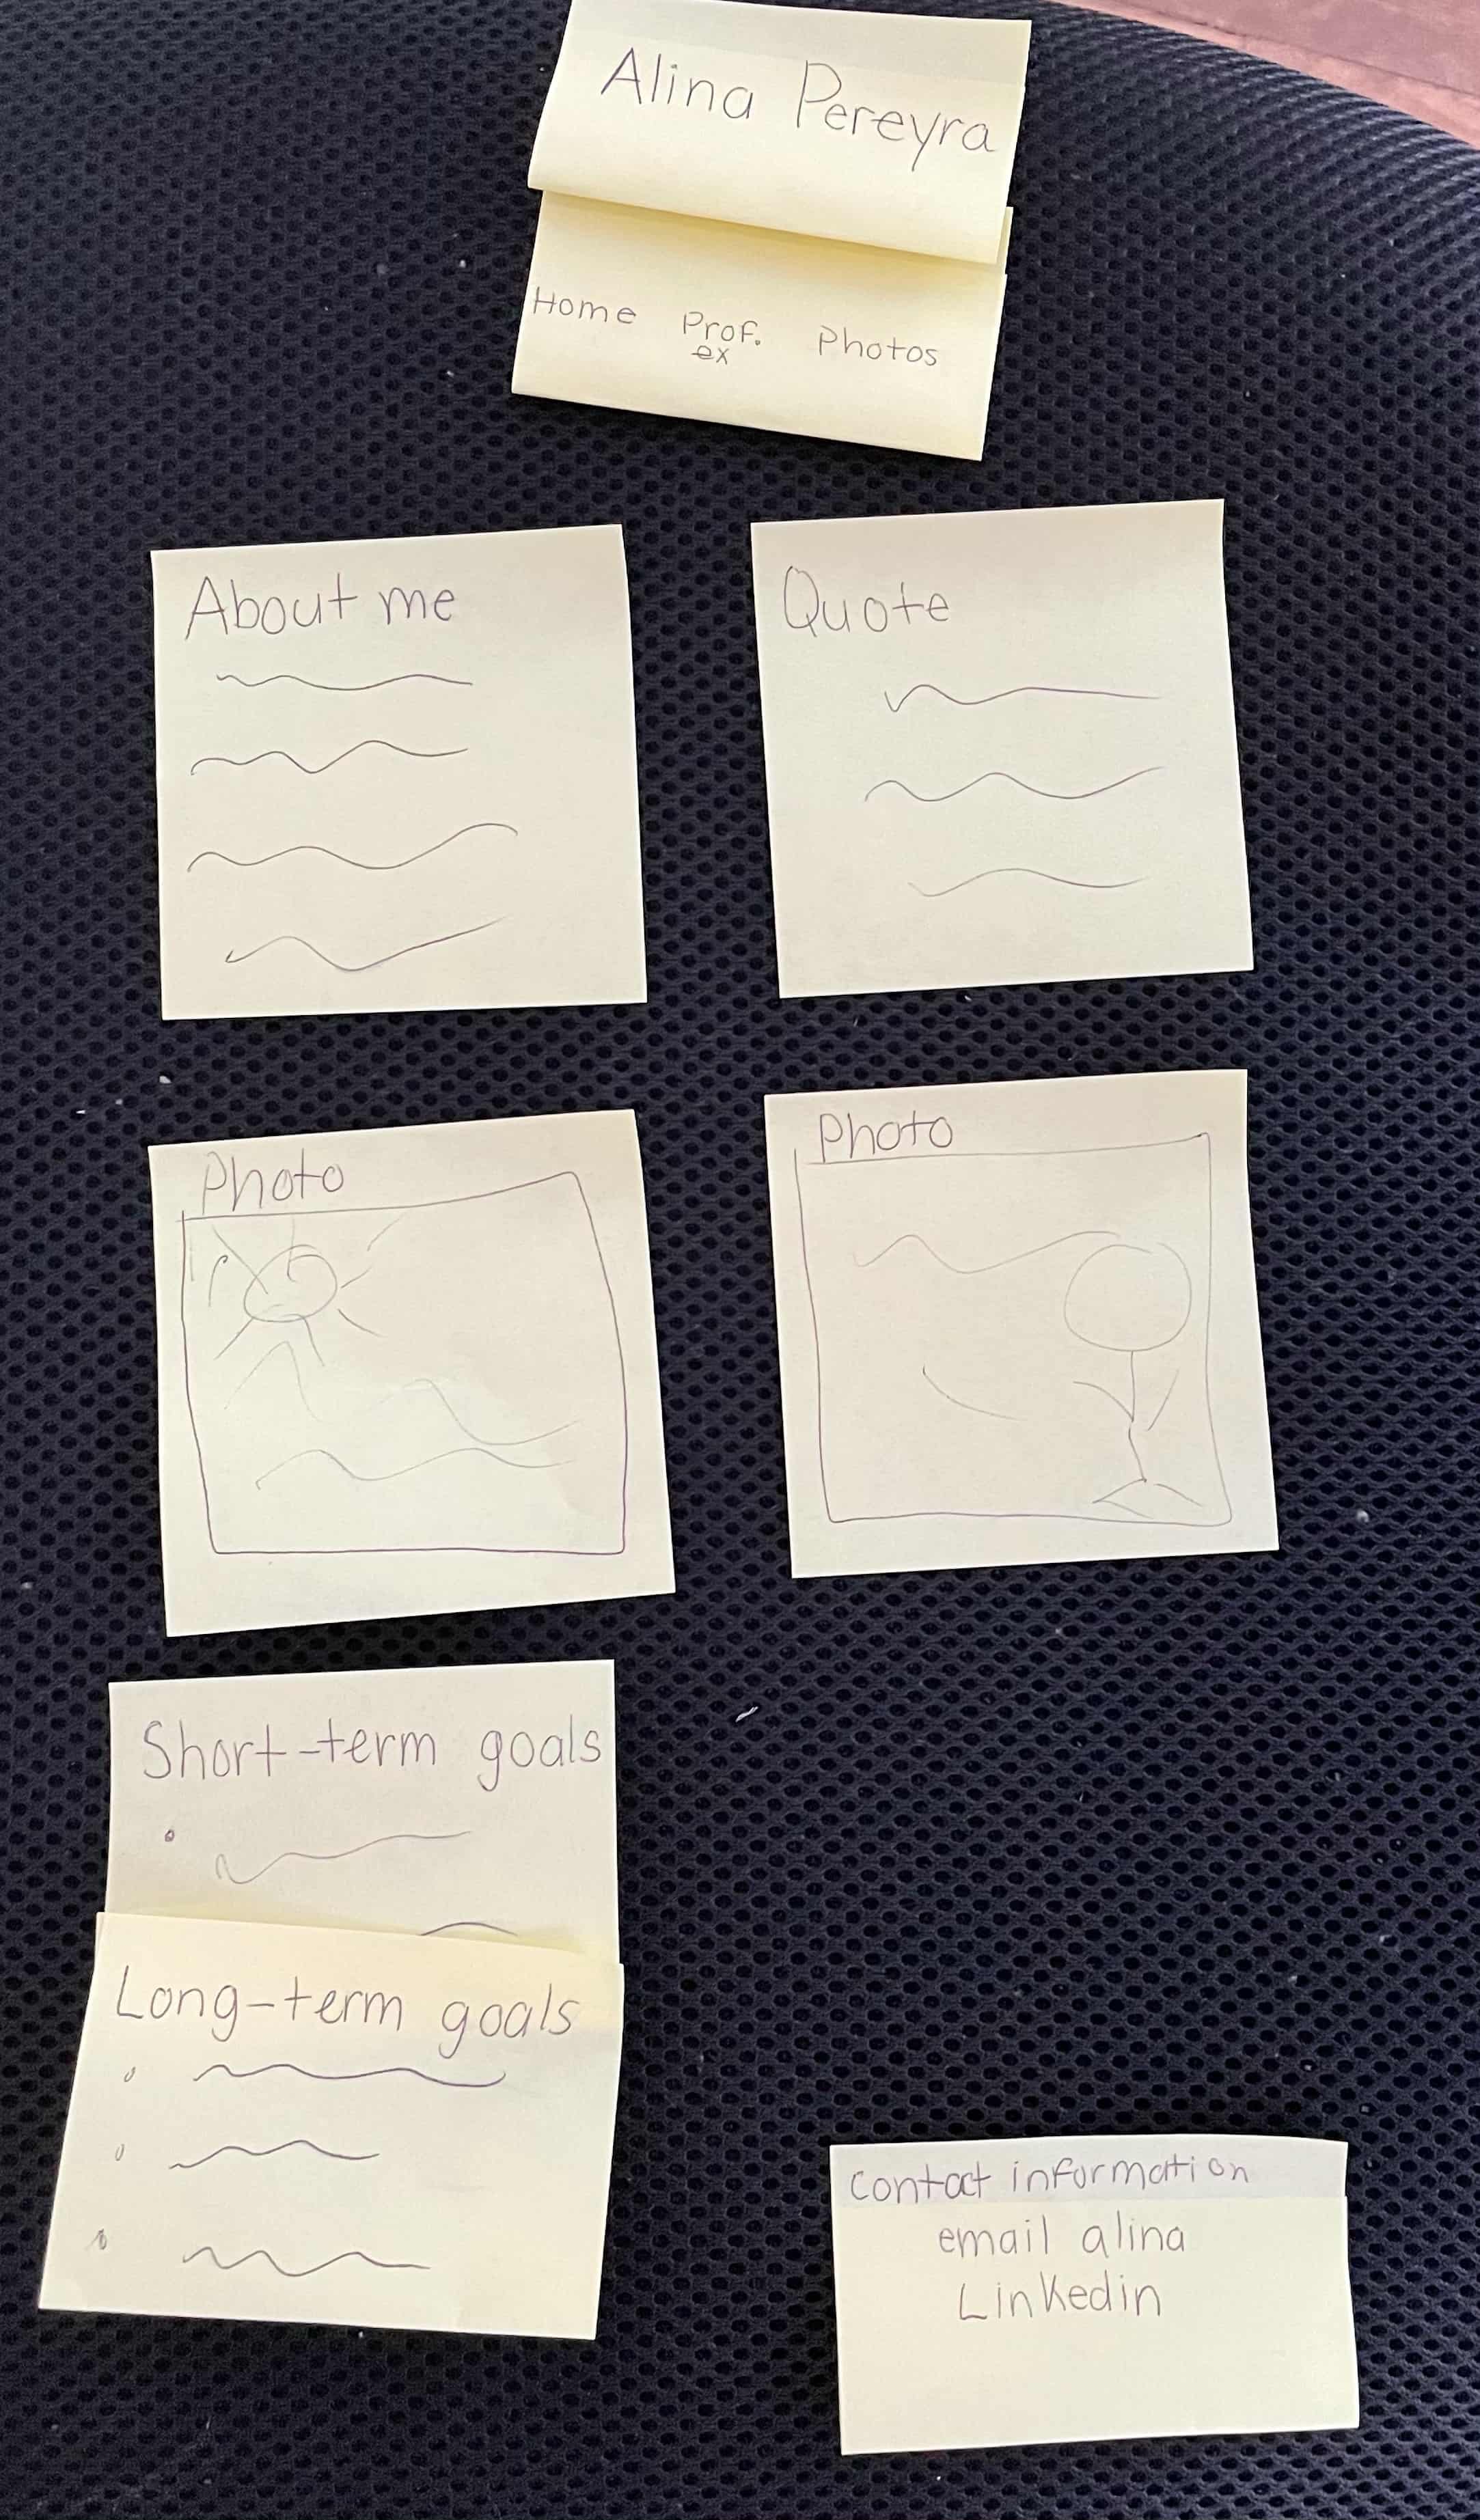 Alina Pereyra
Home Prof. ex Photos
About me
Quote
Photo
Photo
Short-term goals
Long-term goals
contact information
email alina
Linkedin